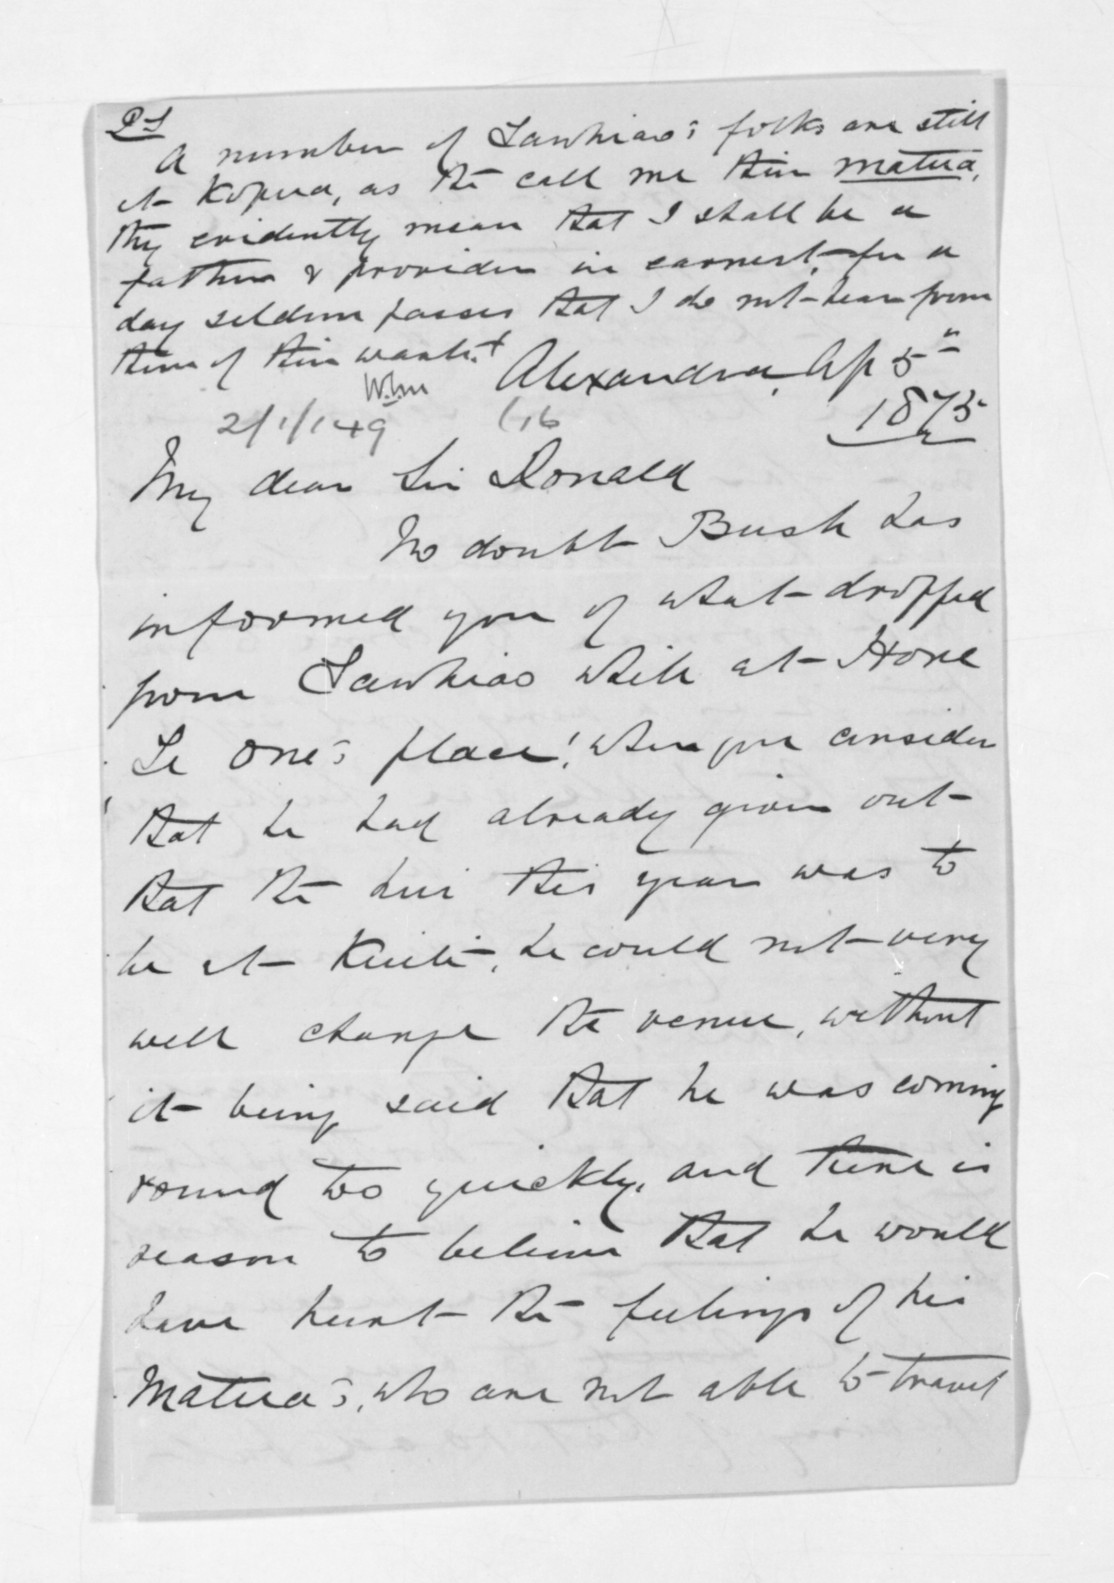 PS
A number of Tawhiao's folks are still
at Kopua, as the call me their matua,
they evidently mean that I shall be a
father & provider in earnest, for a
day seldom passes that I do not hear from
them of their wants.
Alexandra, Ap 5th
W.L.M
2/1/149 16
1875
My dear Sir Donald
No doubt Bush has
informed you of what dropped
from Tawhiao while at Hone
Te One's place! when you consider
that he had already given out
that the hui this year was to
be at Kuiti, he could not very
well change the venue, without
it being said that he was coming
round too quickly, and there is
reason to believe that he would
have hurt the feelings of his
Matua's, who are not able to travel